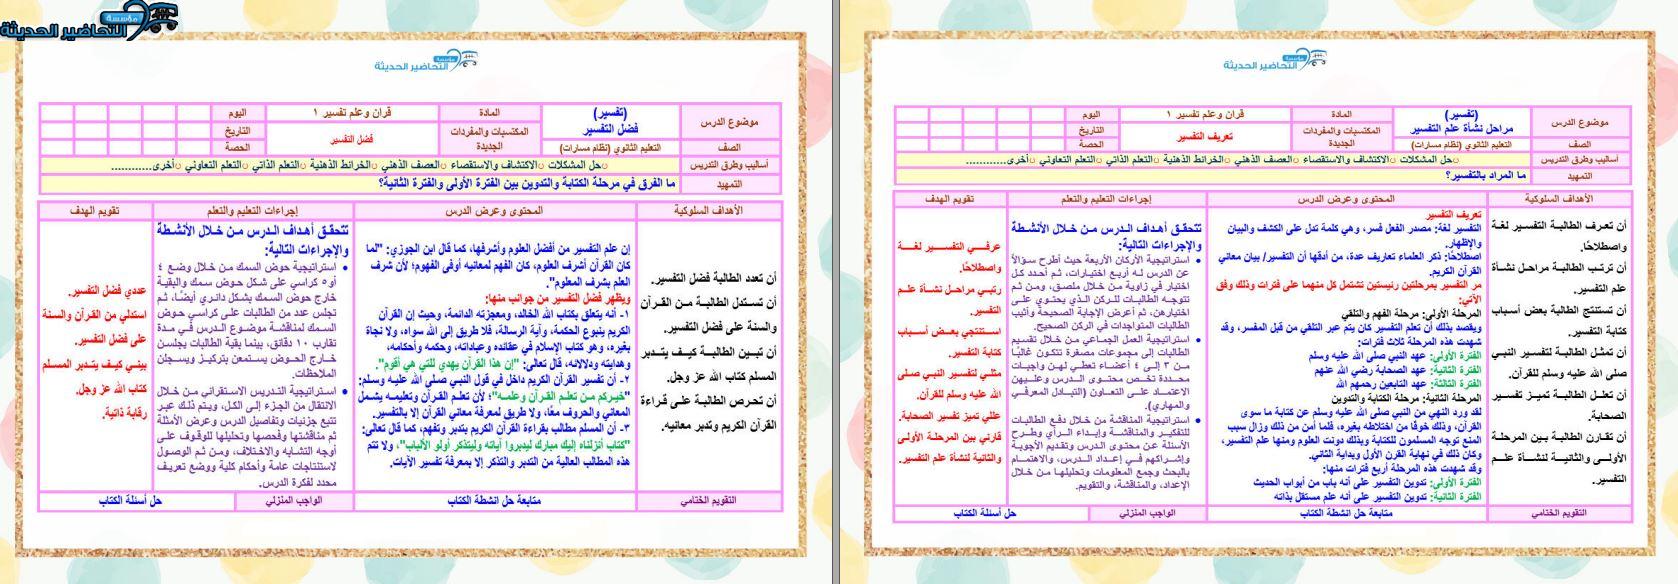 مؤسسة
التحاضير الحديثة
مؤسسة
التحاضير الحديثة
موضوع الدرس
(تفسير)
مراحل نشأة علم التفسير
المادة
قران وعلم تفسير ١
اليوم
الصف
التعليم الثانوي (نظام مسارات)
المكتسبات والمفردات الجديدة
تعريف التفسير
التاريخ
الحصة
أساليب وطرق التدريس
○حل المشكلات ○الاكتشاف والاستقصاء ○العصف الذهني ○الخرائط الذهنية ○التعلم الذاتي ○التعلم التعاوني ○أخرى............
التمهيد
ما المراد بالتفسير؟
الأهداف السلوكية
المحتوى وعرض الدرس
إجراءات التعليم والتعلم
تقويم الهدف
أن تعرف الطالبة التفسير لغة
واصطلاحًا.
أن ترتب الطالبة مراحل نشأة
علم التفسير.
أن تستنتج الطالبة بعض أسباب
كتابة التفسير.
أن تمثل الطالبة لتفسير النبي
صلى الله عليه وسلم للقرآن.
أن تعلل الطالبة تميز تفسير
الصحابة.
أن تقارن الطالبة بين المرحلة
الأولى والثانية لنشأة علم
التفسير.
تعريف التفسير
التفسير لغة: مصدر الفعل فسر، وهي كلمة تدل على الكشف والبيان
والإظهار.
اصطلاحًا: ذكر العلماء تعاريف عدة، من أدقها أن التفسير/ بيان معاني
القرآن الكريم.
مر التفسير بمرحلتين رئيستين تشتمل كل منهما على فترات وذلك وفق
الآتي:
المرحلة الأولى: مرحلة الفهم والتلقي
ويقصد بذلك أن تعلم التفسير كان يتم عبر التلقي من قبل المفسر، وقد
شهدت هذه المرحلة ثلاث فترات:
الفترة الأولى: عهد النبي صلى الله عليه وسلم
الفترة الثانية: عهد الصحابة رضي الله عنهم
الفترة الثالثة: عهد التابعين رحمهم الله
المرحلة الثانية: مرحلة الكتابة والتدوين
لقد ورد النهي من النبي صلى الله عليه وسلم عن كتابة ما سوى
القرآن، وذلك خوفًا من اختلاطه بغيره، فلما أمن من ذلك وزال سبب
المنع توجه المسلمون للكتابة وبذلك دونت العلوم ومنها علم التفسير،
وكان ذلك في نهاية القرن الأول وبداية الثاني.
وقد شهدت هذه المرحلة أربع فترات منها:
الفترة الأولى: تدوين التفسير على أنه باب من أبواب الحديث
الفترة الثانية: تدوين التفسير على أنه علم مستقل بذاته
تتحقق أهداف الدرس من خلال الأنشطة
والإجراءات التالية:
• استراتيجية الأركان الأربعة حيث أطرح سؤالاً
عن الدرس له أربع اختيارات، ثم أحدد كل
اختيار في زاوية من خلال ملصق، ومن ثم
تتوجه الطالبات للركن الذي يحتوي على
اختيارهن، ثم أعرض الإجابة الصحيحة وأثيب
الطالبات المتواجدات في الركن الصحيح.
• استراتيجية العمل الجماعي من خلال تقسيم
الطالبات إلى مجموعات مصغرة تتكون غالبًا
من ٣ إلى ٤ أعضاء تعطي لهن واجبات
محددة تخص محتوى الدرس وعليهن
الاعتماد على التعاون (التبادل المعرفي
والمهاري).
• استراتيجية المناقشة من خلال دفع الطالبات
للتفكير والمناقشة وإبداء الرأي وطرح
الأسئلة عن محتوى الدرس وتقديم الأجوبة
وإشراكهم في إعداد الدرس، والاهتمام
بالبحث وجمع المعلومات وتحليلها من خلال
الإعداد، والمناقشة، والتقويم.
عرفي التفسير لغة
واصطلاحًا.
رتبي مراحل نشأة علم
التفسير.
استنتجي بعض أسباب
كتابة التفسير.
مثلي لتفسير النبي صلى
الله عليه وسلم للقرآن.
عللي تميز تفسير الصحابة.
قارني بين المرحلة الأولى
والثانية لنشأة علم التفسير.
التقويم الختامي
متابعة حل انشطة الكتاب
الواجب المنزلي
حل أسئلة الكتاب
مؤسسة
التحاضير الحديثة
موضوع الدرس
(تفسير)
فضل التفسير
المادة
قران وعلم تفسير ١
اليوم
الصف
التعليم الثانوي (نظام مسارات)
المكتسبات والمفردات الجديدة
فضل التفسير
التاريخ
الحصة
أساليب وطرق التدريس
○حل المشكلات ○الاكتشاف والاستقصاء ○العصف الذهني ○الخرائط الذهنية ○التعلم الذاتي ○التعلم التعاوني ○أخرى............
التمهيد
ما الفرق في مرحلة الكتابة والتدوين بين الفترة الأولى والفترة الثانية؟
الأهداف السلوكية
المحتوى وعرض الدرس
إجراءات التعليم والتعلم
تقويم الهدف
أن تعدد الطالبة فضل التفسير.
أن تستدل الطالبة من القرآن
والسنة على فضل التفسير.
أن تبين الطالبة كيف يتدبر
المسلم كتاب الله عز وجل.
أن تحرص الطالبة على قراءة
القرآن الكريم وتدبر معانيه.
إن علم التفسير من أفضل العلوم وأشرفها، كما قال ابن الجوزي: "لما
كان القرآن أشرف العلوم، كان الفهم لمعانيه أوفى الفهوم؛ لأن شرف
العلم بشرف المعلوم".
ويظهر فضل التفسير من جوانب منها:
١- أنه يتعلق بكتاب الله الخالد، ومعجزته الدائمة، وحيث إن القرآن
الكريم ينبوع الحكمة، وآية الرسالة، فلا طريق إلى الله سواه، ولا نجاة
بغيره، وهو كتاب الإسلام في عقائده وعباداته، وحكمه وأحكامه،
وهدايته ودلالاته، قال تعالى: "إن هذا القرآن يهدي للتي هي أقوم".
٢- أن تفسير القرآن الكريم داخل في قول النبي صلى الله عليه وسلم:
"خيركم من تعلم القرآن وعلمه"؛ لأن تعلم القرآن وتعليمه يشمل
المعاني والحروف معًا، ولا طريق لمعرفة معاني القرآن إلا بالتفسير.
٣- أن المسلم مطالب بقراءة القرآن الكريم بتدبر وتفهم، كما قال تعالى:
"كتاب أنزلناه إليك مبارك ليدبروا آياته وليتذكر أولو الألباب"، ولا تتم
هذه المطالب العالية من التدبر والتذكر إلا بمعرفة تفسير الآيات.
تتحقق أهداف الدرس من خلال الأنشطة
والإجراءات التالية:
• استراتيجية حوض السمك من خلال وضع ٤
أو٥ كراسي على شكل حوض سمك والبقية
خارج حوض السمك بشكل دائري أيضًا، ثم
تجلس عدد من الطالبات على كراسي حوض
السمك لمناقشة موضوع الدرس في مدة
تقارب ١٠ دقائق، بينما بقية الطالبات يجلسن
خارج الحوض يستمعن بتركيز ويسجلن
الملاحظات.
• استراتيجية التدريس الاستقرائي من خلال
الانتقال من الجزء إلى الكل، ويتم ذلك عبر
تتبع جزئيات وتفاصيل الدرس وعرض الأمثلة
ثم مناقشتها وفحصها وتحليلها للوقوف على
أوجه التشابه والاختلاف، ومن ثم الوصول
لاستنتاجات عامة وأحكام كلية ووضع تعريف
محدد لفكرة الدرس.
عددي فضل التفسير.
استدلي من القرآن والسنة
على فضل التفسير.
بيني كيف يتدبر المسلم
كتاب الله عز وجل.
رقابة ذاتية.
التقويم الختامي
متابعة حل انشطة الكتاب
الواجب المنزلي
حل أسئلة الكتاب